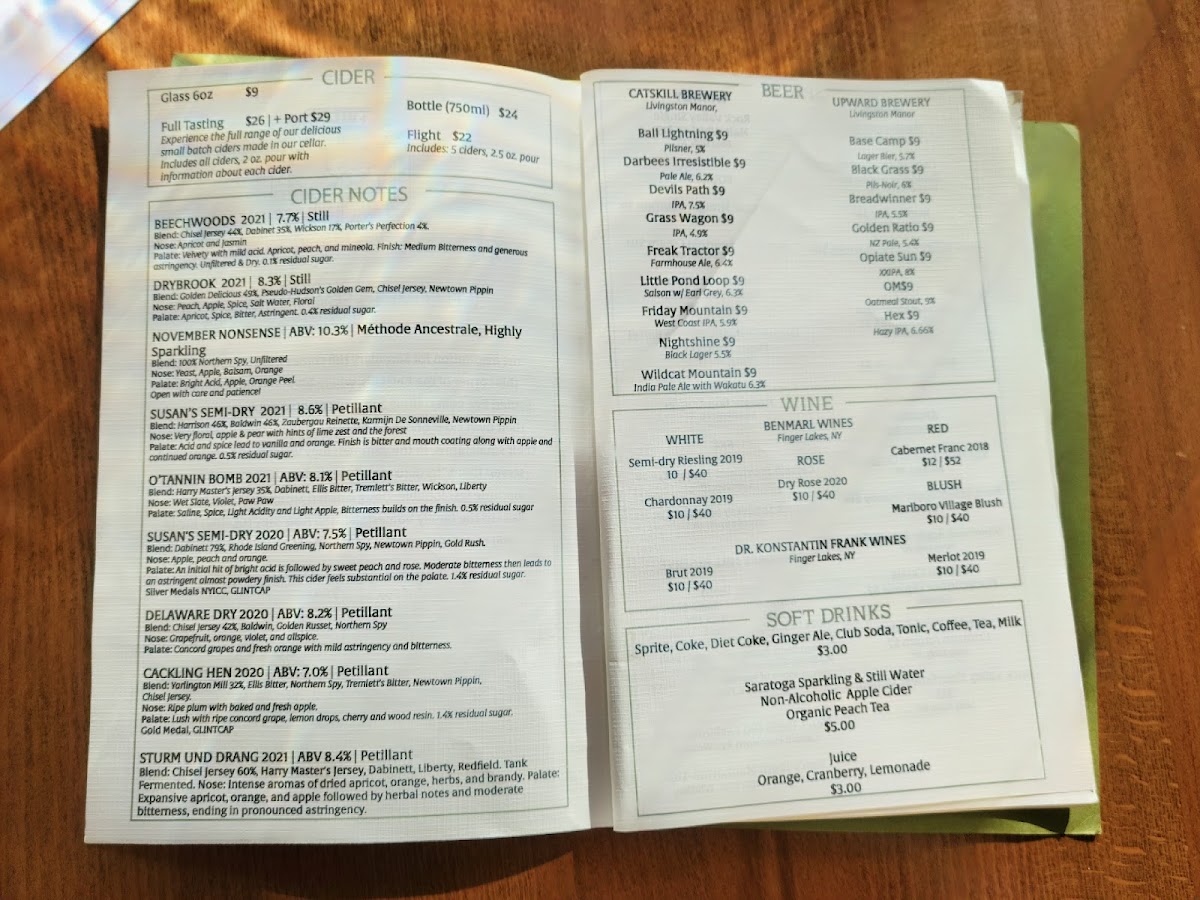 CIDER
Glass 6oz $9
Full Tasting $26 | + Port $29
Experience the full range of our delicious
small batch ciders made in our cellar.
Includes all ciders, 2 oz. pour with
information about each cider.
Bottle (750ml) $24
Flight $22
Includes: 5 ciders, 2.5 oz. pour
CIDER NOTES
BEECHWOODS 2021 | 7.7% | Still
Blend: Chisel Jersey 44%, Dabinet 35%, Wickson 17%, Porter's Perfection 4%.
Nose: Apricot and Jasmin
Palate: Velvety with mild acid. Apricot, peach, and mineola. Finish: Medium Bitterness and generous
astringency. Unfiltered & Dry. 0.1% residual sugar.
DRYBROOK 2021 | 8.3% | Still
Blend: Golden Delicious 49%, Pseudo-Hudson's Golden Gem, Chisel Jersey, Newtown Pippin
Nose: Peach, Apple, Spice, Salt Water, Floral
Palate: Apricot, Spice, Bitter, Astringent. 0.4% residual sugar.
NOVEMBER NONSENSE | ABV: 10.3% | Méthode Ancestrale, Highly
Sparkling
Blend: 100% Northern Spy, Unfiltered
Nose: Yeast, Apple, Balsam, Orange
Palate: Bright Acid, Apple, Orange Peel
Open with care and patience!
SUSAN'S SEMI-DRY 2021 | 8.6% | Petillant
Blend: Harrison 46%, Baldwin 46%, Zaubergau Reinette, Karmijn De Sonneville, Newtown Pippin
Nose: Very floral, apple & pear with hints of lime zest and the forest
Palate: Acid and spice lead to vanilla and orange. Finish is bitter and mouth coating along with apple and
continued orange. 0.5% residual sugar.
O'TANNIN BOMB 2021 | ABV: 8.1% | Petillant
Blend: Harry Master's Jersey 35%, Dabinett, Ellis Bitter, Tremlett's Bitter, Wickson, Liberty
Nose: Wet Slate, Violet, Paw Paw
Palate: Saline, Spice, Light Acidity and Light Apple, Bitterness builds on the finish. 0.5% residual sugar
SUSAN'S SEMI-DRY 2020 | ABV: 7.5% | Petillant
Blend: Dabinett 79%, Rhode Island Greening, Northern Spy, Newtown Pippin, Gold Rush.
Nose: Apple, peach and orange.
Palate: An initial hit of bright acid is followed by sweet peach and rose. Moderate bitterness then leads to
an astringent almost powdery finish. This cider feels substantial on the palate. 1.4% residual sugar.
Silver Medals NYICC, GLINTCAP
DELAWARE DRY 2020 | ABV: 8.2% | Petillant
Blend: Chisel Jersey 42%, Baldwin, Golden Russet, Northern Spy
Nose: Grapefruit, orange, violet, and allspice.
Palate: Concord grapes and fresh orange with mild astringency and bitterness.
CACKLING HEN 2020 | ABV: 7.0% | Petillant
Blend: Yarlington Mill 32%, Ellis Bitter, Northern Spy, Tremlett's Bitter, Newtown Pippin,
Chisel Jersey.
Nose: Ripe plum with baked and fresh apple.
Palate: Lush with ripe concord grape, lemon drops, cherry and wood resin. 1.4% residual sugar.
Gold Medal, GLINTCAP
STURM UND DRANG 2021 | ABV 8.4% | Petillant
Blend: Chisel Jersey 60%, Harry Master's Jersey, Dabinett, Liberty, Redfield. Tank
Fermented. Nose: Intense aromas of dried apricot, orange, herbs, and brandy. Palate:
Expansive apricot, orange, and apple followed by herbal notes and moderate
bitterness, ending in pronounced astringency.
BEER
CATSKILL BREWERY
Livingston Manor,
Ball Lightning $9
Pilsner, 5%
Darbees Irresistible $9
Pale Ale, 6.2%
Devils Path $9
IPA, 7.5%
Grass Wagon $9
IPA, 4.9%
Freak Tractor $9
Farmhouse Ale, 6.4%
Little Pond Loop $9
Saison w/ Earl Grey, 6.3%
Friday Mountain $9
West Coast IPA, 5.9%
Nightshine $9
Black Lager 5.5%
Wildcat Mountain $9
India Pale Ale with Wakatu 6.3%
UPWARD BREWERY
Livingston Manor
Base Camp $9
Lager Bier, 5.7%
Black Grass $9
Pils-Noir, 6%
Breadwinner $9
IPA, 5.5%
Golden Ratio $9
NZ Pale, 5.4%
Opiate Sun $9
XXIPA, 8%
OM$9
Oatmeal Stout, 5%
Hex $9
Hazy IPA, 6.66%
WINE
BENMARL WINES
Finger Lakes, NY
WHITE
Semi-dry Riesling 2019
10 | $40
Chardonnay 2019
$10 | $40
ROSE
Dry Rose 2020
$10 | $40
RED
Cabernet Franc 2018
$12 | $52
BLUSH
Marlboro Village Blush
$10 | $40
DR. KONSTANTIN FRANK WINES
Finger Lakes, NY
Brut 2019
$10 | $40
Merlot 2019
$10 | $40
SOFT DRINKS
Sprite, Coke, Diet Coke, Ginger Ale, Club Soda, Tonic, Coffee, Tea, Milk
$3.00
Saratoga Sparkling & Still Water
Non-Alcoholic Apple Cider
Organic Peach Tea
$5.00
Juice
Orange, Cranberry, Lemonade
$3.00